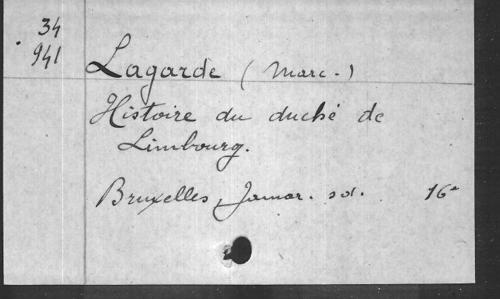 34
941
Lagarde (Marc.)
Histoire du duché de
Limbourg.
Bruxelles, Jamar. sd. 16°